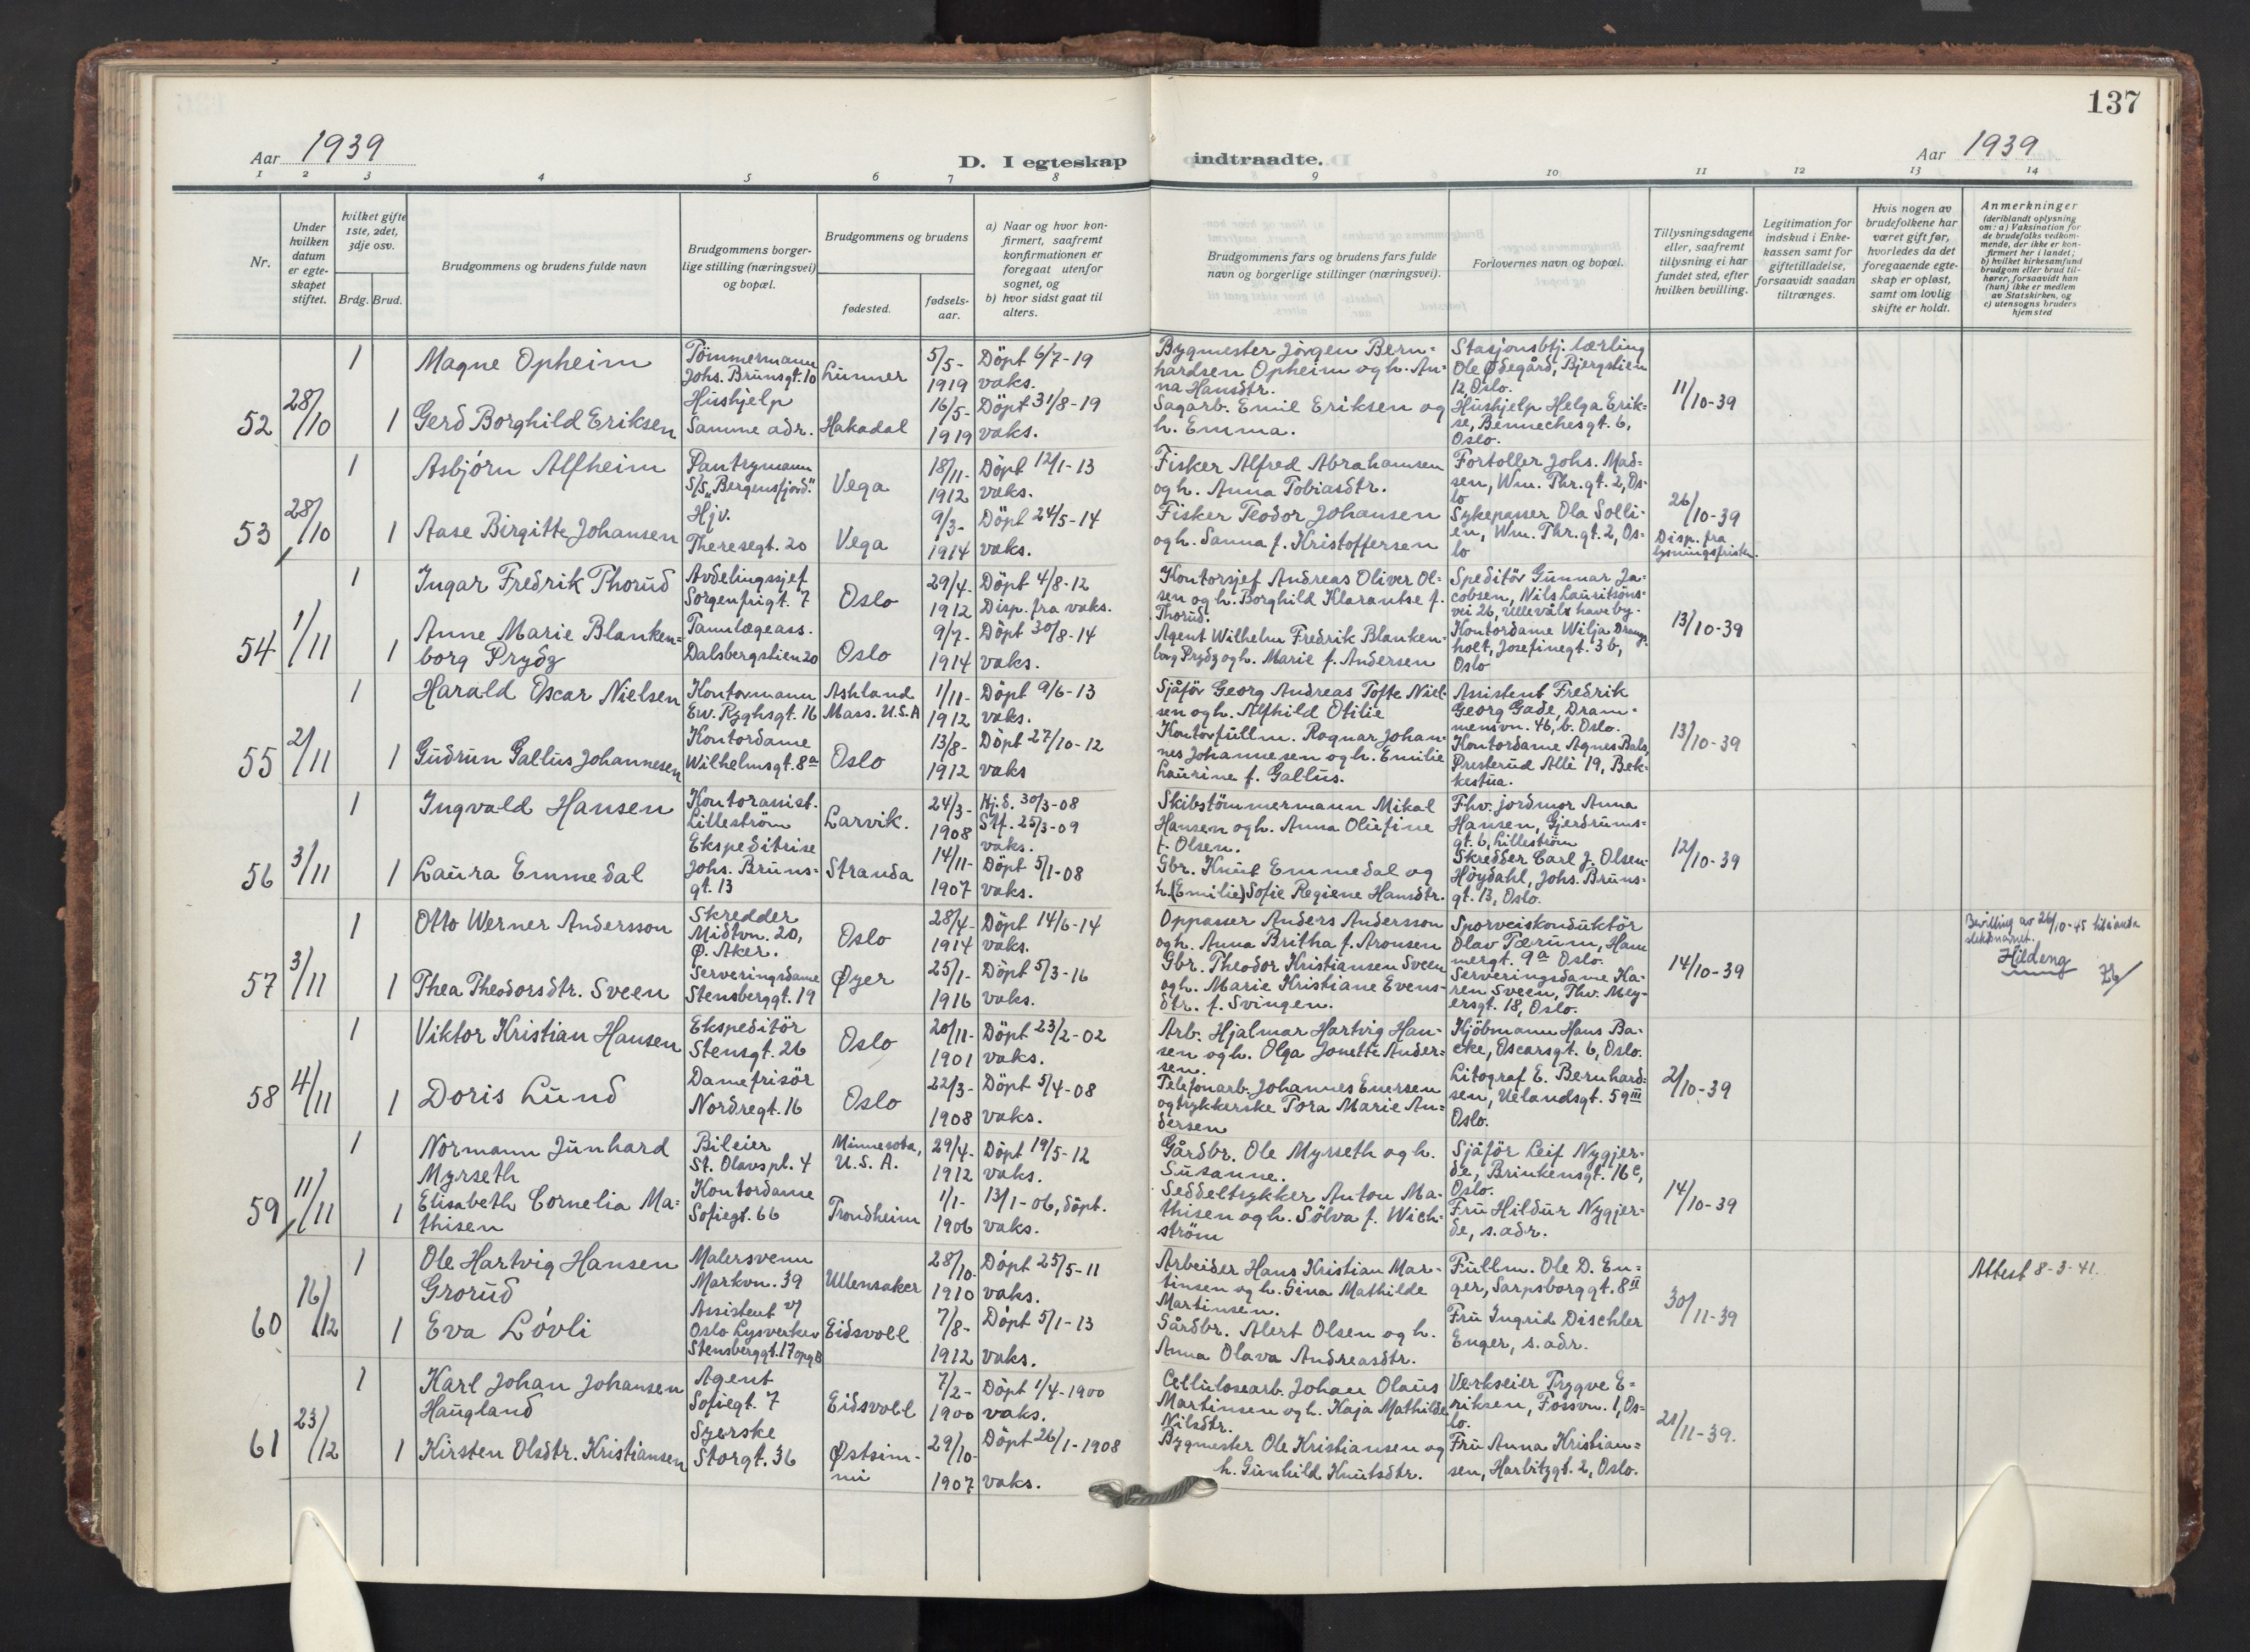 137
Aar 1939
D. I egteskap indtraadte.
Aar 1939
1 2 3 4 5 6 7 8 9 10 11 12 13 14
Nr.
Under hvilken datum er egteskapet stiftet.
hvilket gifte 1ste, 2det, 3dje osv.
Brdg. Brud.
Brudgommens og brudens fulde navn
Brudgommens borgerlige stilling (næringsvei) og bopæl.
Brudgommens og brudens
fødested.
fødselsaar.
a) Naar og hvor konfirmert, saafremt konfirmationen er foregaat utenfor sognet, og
b) hvor sidst gaat til alters.
Brudgommens fars og brudens fars fulde navn og borgerlige stillinger (næringsvei).
Forlovernes navn og bopæl.
Tillysningsdagene eller, saafremt tillysning ei har fundet sted, efter hvilken bevilling.
Legitimation for indskud i Enkekassen samt for giftetilladelse, forsaavidt saadan tiltrænges.
Hvis nogen av brudefolkene har været gift før, hvorledes da det foregaaende egteskap er opløst, samt om lovlig skifte er holdt.
Anmerkninger
(deriblandt oplysning om: a) Vaksination for de brudefolks vedkommende, der ikke er konfirmert her i landet; b) hvilket kirkesamfund brudgom eller brud tilhører, forsaavidt han (hun) ikke er medlem av Statskirken, og c) utensogns bruders hjemsted
52
28/10
1
Magne Opheim
Tømmermann
Johs. Brunsgt. 10
Lunner
5/5-
1919
Döpt 6/7-19
vaks.
Bygmester Jörgen Bern=
hardsen Opheim og h. An=
na Hansdtr.
Stasjonsbtj. lærling
Ole Ødegård, Bjergstien
12, Oslo.
11/10-39
1
Gerd Borghild Eriksen
Hushjelp
Samme adr.
Hakadal
16/5-
1919
Döpt 31/8-19
vaks.
Sagarb. Emil Eriksen og
h. Emma.
Hushjelp Helga Erik=
se, Bennechesgt. 6,
Oslo.
53
28/10
1
Asbjörn Alfheim
Pantrymann
S/S "Bergensfjord".
Vega
18/11-
1912
Döpt 12/1-13
vaks.
Fisker Alfred Abrahamsen
og h. Anna Tobiasdtr.
Fortoller Johs. Mad=
sen, Wm. Thr.gt. 2, Os=
lo
26/10-39
Disp. fra
lysningsfristen.
1
Aase Birgitte Johansen
Hjv.
Theresegt. 20
Vega
9/3-
1914
Döpt 24/5-14
vaks.
Fisker Teodor Johansen
og h. Sanna f. Kristoffersen
Sykepasser Ola Solli=
en, Wm. Thr.gt. 2, Os=
lo
54
1/11
1
Ingar Fredrik Thorud
Avdelingssjef
Sorgenfrigt. 7
Oslo
29/4-
1912
Döpt 4/8-12
Disp. fra vaks.
Kontorsjef Andreas Oliver Ol=
sen og h. Borghild Klarantse f.
Thorud.
Speditör Gunnar Ja=
cobsen, Nils Lauritsöns=
vei 26, Ullevåls haveby.
13/10-39
1
Anne Marie Blanken=
borg Prydz
Tannlægeass.
Dalsbergstien 20
Oslo
9/7-
1914
Döpt 30/8-14
vaks.
Agent Wilhelm Fredrik Blanken=
borg Prydz og h. Marie f. Andersen
Kontordame Wilja
holt, Josefinegt. 36,
Oslo
55
2/11
1
Harald Oscar Nielsen
Kontormann
Ew. Ryghsgt. 16
Ashland
Mass. U.S.A
1/11-
1912
Döpt 9/6-13
vaks.
Sjåför Georg Andreas Tofte Niel=
sen og h. Alfhild Otilie
Assistent Fredrik
Georg Gade, Dram=
mensvn. 46, b. Oslo.
13/10-39
1
Gudrun Gallus Johannesen
Kontordame
Wilhelmsgt. 8a
Oslo
13/8-
1912
Döpt 27/10-12
vaks
Kontorfullm. Ragnar Johan=
nes Johannesen og h. Emilie
Laurine f. Gallus.
Kontordame Agnes Bals,
Presterud Allé 19, Bek=
kestua.
56
3/11
1
Ingvald Hansen
Kontorassist.
Lilleström
Larvik.
24/3-
1908
Hj.d. 30/3-08
Stf. 25/3-09
vaks.
Skibstömmermann Mikal
Hansen og h. Anna Olufine
f. Olsen.
Fhv. jordmor Anna
Hansen, Gjerdrums=
gt. 6, Lilleström
12/10-39
1
Laura Emmedal
Ekspeditrise
Johs. Bruns=
gt. 13
Stranda
14/11-
1907
Döpt 5/1-08
vaks.
Gbr. Knut Emmedal og
h. (Emilie) Sofie Regiene Hansdtr.
Skredder Carl J. Olsen
Höydahl, Johs. Bruns=
gt. 13, Oslo.
57
3/11
1
Otto Werner Andersson
Skredder
Midtvn. 20,
Ø. Aker.
Oslo
28/4-
1914
Döpt 14/6-14
vaks.
Oppasser Anders Andersson
og h. Anna Britha f. Aronsen
Sporveiskonduktör
Olav Tærum, Ham
mergt. 9a Oslo.
14/10-39
Bevilling av 26/10-45 til å anta
slektsnavnet:
Hildeng
1
Thea Theodorsdtr. Sveen
Serveringsdame
Stensberggt. 19
Øyer
25/1-
1916
Döpt 5/3-16
vaks.
Gbr. Theodor Kristiansen Sveen
og h. Marie Kristiane Evens=
dtr. f. Svingen.
Serveringsdame Ka=
ren Sveen, Thv. Mey=
ersgt. 18, Oslo.
58
4/11
1
Viktor Kristian Hansen
Ekspeditör
Stensgt. 26
Oslo
20/11-
1901
Döpt 23/2-02
vaks.
Arb. Hjalmar Hartvig Han=
sen og h. Olga Jonette Ander=
sen.
Kjöbmann Hans Ba=
cke, Oscarsgt. 6, Oslo.
2/10-39
1
Doris Lund
Damefrisör
Nordregt. 16
Oslo
22/3-
1908
Döpt 5/4-08
vaks.
Telefonarb. Johannes Enersen
og trykkerske Tora Marie An=
dersen
Litograf E. Bernhard=
sen, Uelandsgt. 59 III
Oslo.
59
11/11
1
Normann Junhard
Myrseth
Bileier
St. Olavspl. 4
Minnesota,
U.S.A.
29/4-
1912
Döpt 19/5-12
vaks.
Gårdbr. Ole Myrseth og h.
Susanne.
Sjåför Leif Nygjer=
de, Brinkensgt. 16c,
Oslo.
14/10-39
1
Elisabeth Cornelia Ma=
thisen
Kontordame
Sofiegt. 66
Trondheim
1/1-
1906
13/1-06, döpt.
vaks.
Seddeltrykker Anton Ma=
thisen og h. Sölva f. Wich=
ström
Fru Hildur Nygjer=
de, s. adr.
60
16/12
1
Ole Hartvig Hansen
Grorud
Malersvenn
Markvn. 39
Ullensaker
28/10-
1910
Döpt 25/5-11
vaks.
Arbeider Hans Kristian Mar=
tinsen og h. Gina Mathilde
Martinsen.
Fullm. Ole D. En=
ger, Sarpsborggt. 8 II
30/11-39
Attest 8-3-41.
1
Eva Lövli
Assistent v/
Oslo Lysverker
Stensberggt. 17 opg B
Eidsvoll
7/8-
1912
Döpt 5/1-13
vaks.
Gårdbr. Alert Olsen og h.
Anna Olava Andreasdtr.
Fru Ingrid Dischler
Enger, s. adr.
61
23/12
1
Karl Johan Johansen
Haugland
Agent
Sofiegt. 7
Eidsvoll
7/2-
1900
Döpt 1/4-1900
vaks.
Cellulosearb. Johan Olaus
Martinsen og h. Kaja Mathilde
Nilsdtr.
Verkseier Trygve E=
riksen, Fossvn. 1, Os=
lo.
21/11-39.
1
Kirsten Olsdtr. Kristiansen
Syerske
Storgt. 36
Østsin-
ni
29/10-
1907
Döpt 26/1-1908
vaks.
Bygmester Ole Kristiansen og
h. Gunhild Knutsdtr.
Fru Anna Kristian=
sen, Harbitzgt. 2, Oslo.